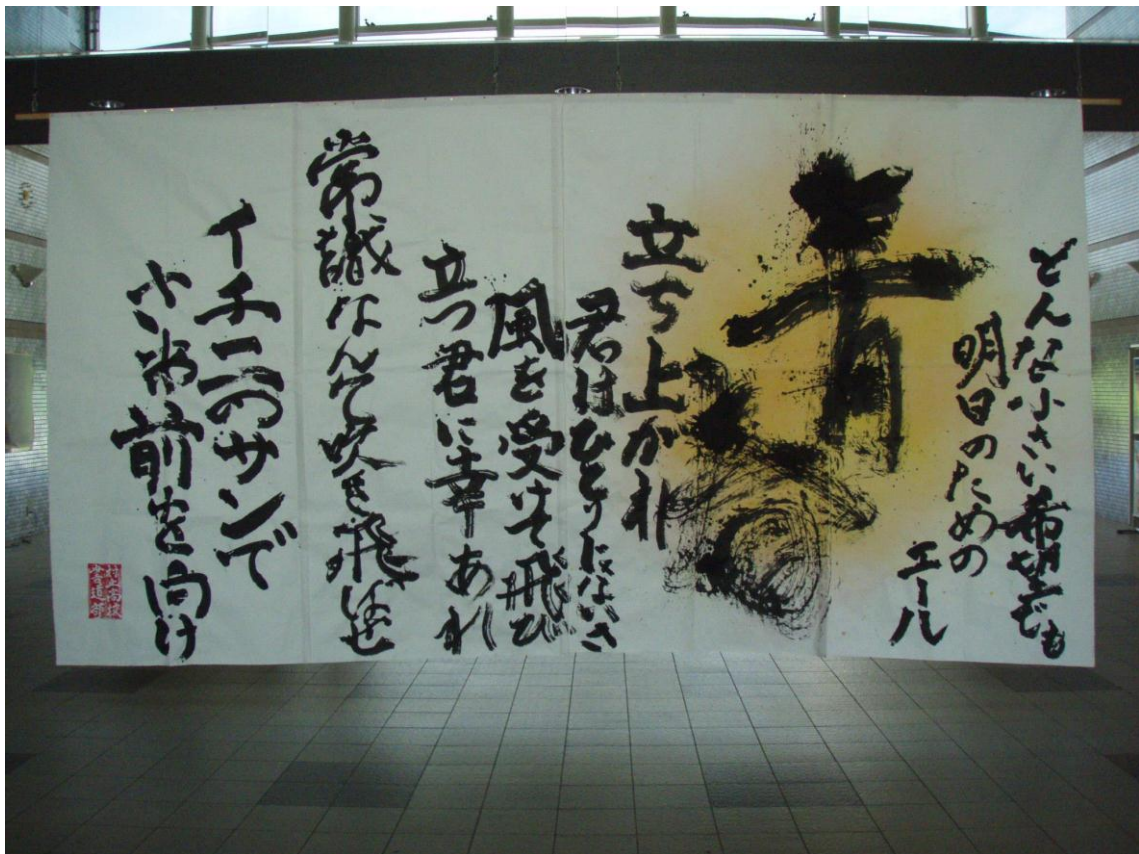 どんな小さい希望でも
明日のための
エール
立ち上がれ
君はひとりじゃないさ
風を受けて飛び
立つ君に幸あれ
常識なんて吹き飛ばせ
イチニのサンで
さあ前を向け